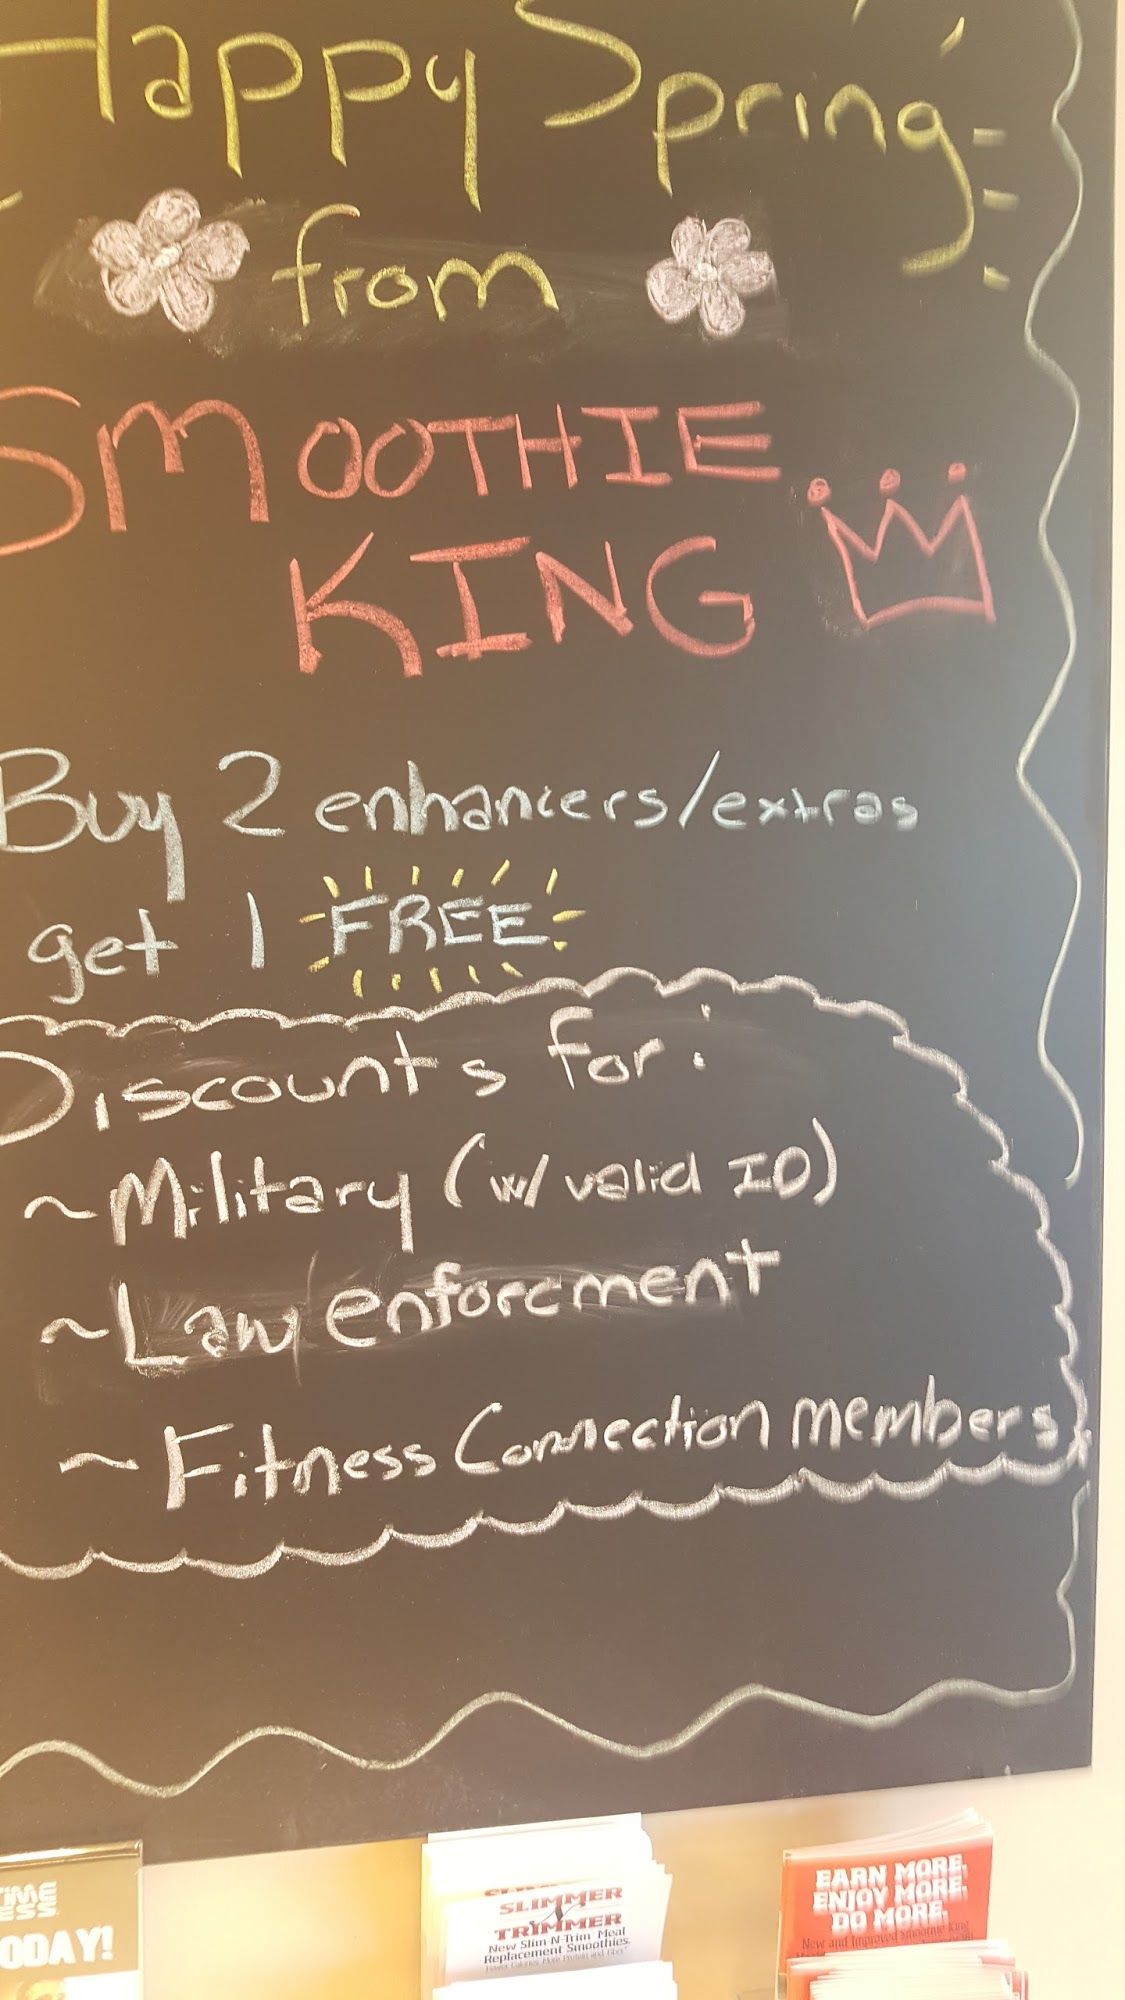 Happy Spring
from
SMOOTHIE
KING
Buy 2 enhancers/extras
get 1 FREE
Discounts for:
~Military (w/ valid ID)
~Law enforcment
~Fitness Connection members
TIME
ESS
TODAY!
SLIMMER
N
TRIMMER
New Slim-N-Trim Meal
Replacement Smoothies.
EARN MORE.
ENJOY MORE.
DO MORE.
New and Improved Smoothie King